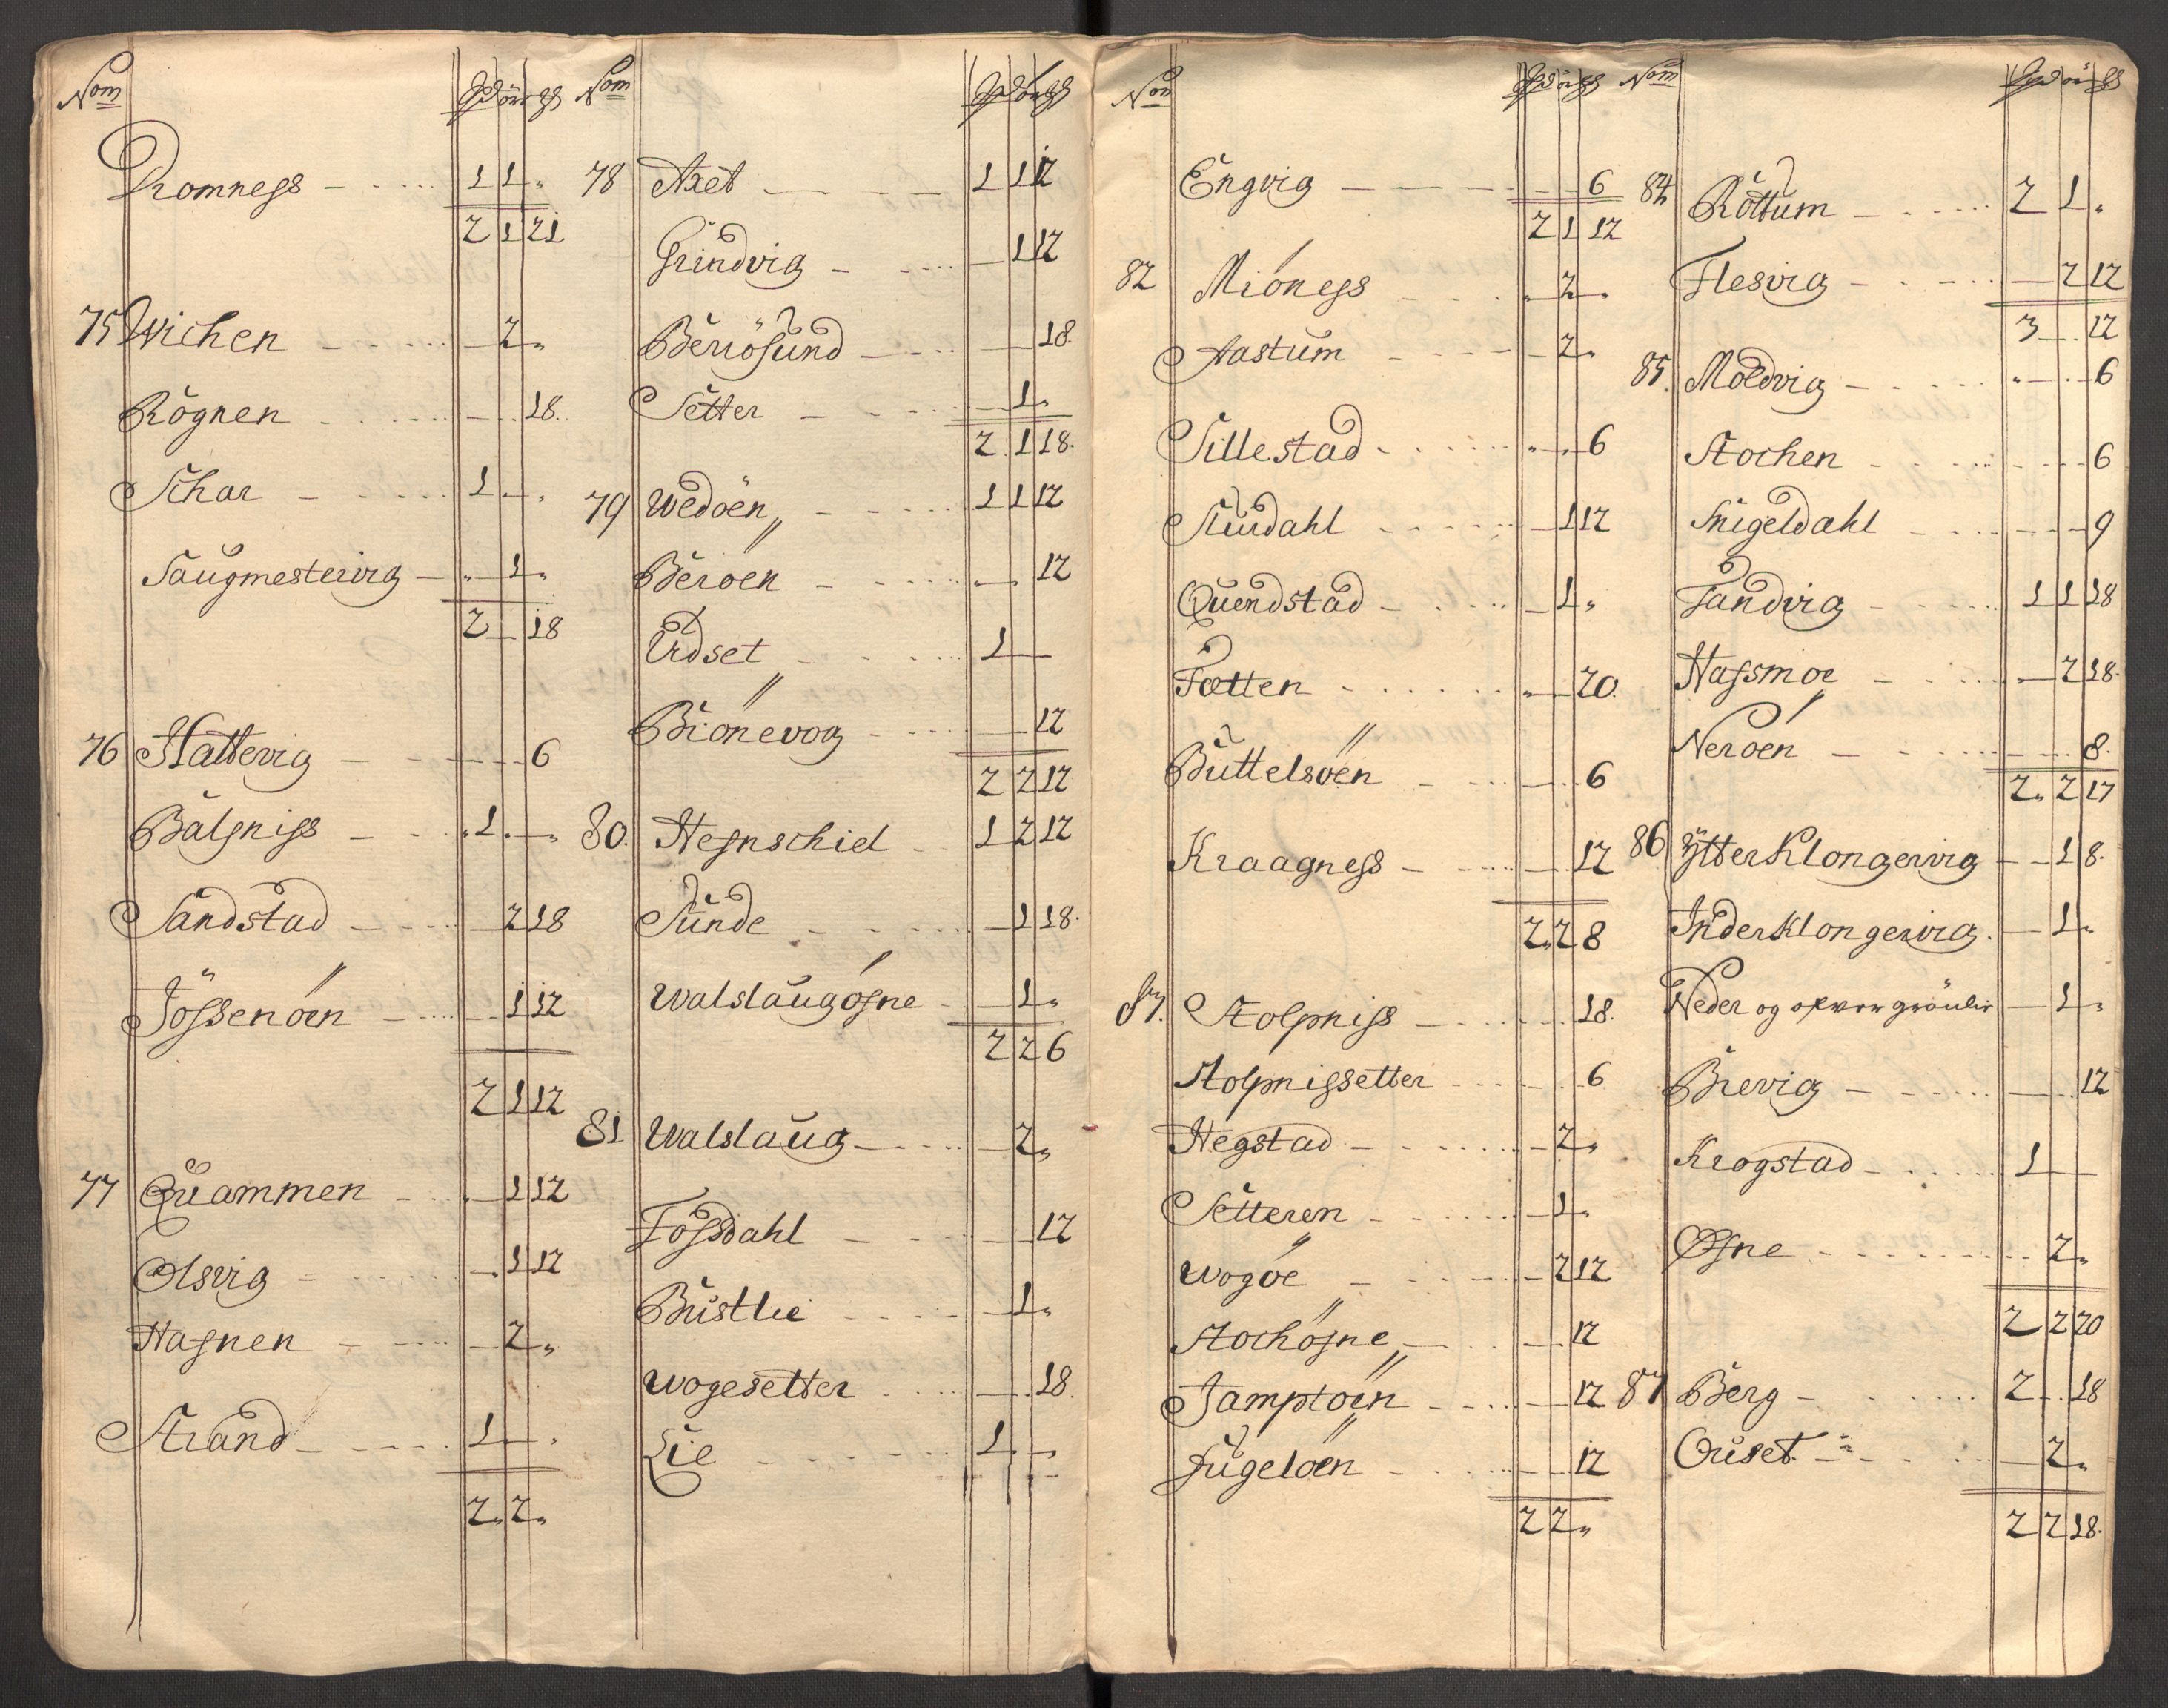 Nom
Romness - 1 1 „
2 1 21
75 Wichen - 2 „
Rögnen - 18.
Schar - 1 - „
Saugmestervig - „ 1 „
2 - 18
76 Hattevig - 6
Balsniss - „ 1 - „
Sandstad - 2 18
Jössenöen - 1 12
2 1 12
77 Quammen - „ 1 12
Olsvig - 1 12
Hasnen - 2 „
Strand - 1 - „
2 „ 2 „
Nom
78 Axet - 1 1 12
Grindvig - 1 12
Beriösund - 18.
Setter - 1 „
2 1 18.
79 Wedöen - 1 1 12
Beroen - 12
Udset - 1 -
Bionevog - 12
2 2 12
80. Hesnschiel - 1 2 12
Sunde - 1 18.
Walslaugösne - 1 „
2 2 6
81 Walslaug - 2 „
Fossdahl - 12
Bustlie - 1 „
Wogesetter - 18.
Lie - 1 -
Nom
Engvig - 6
2 1 12
82 Mioness - „ 2 „
Aastum - 2 „
Sillestad - 6
Sturdahl - 1 12
Quendstad - 1 „
Fætten - „ 20.
Buttelsöen - 6
Kraagness - 12
2 „ 2 8
Stolpniss - 18.
Stolpnissetter - 6
Hegstad - 2 „
Setteren - 1 „
Wogöe - 2 12
Stochösne - 12
Jamptöen - 12
Fugelöen - 12
2 2 „
Nom
84 Röttum - 2 1 „
Flesvig - 2 12
3 - 12
85. Moldvig - „ 6
Stochen - 6
Snigeldahl - 9
Tandvig - 1 1 18
Hassmoe - 2 18.
Neroen - 8.
2 „ 2 17
86 Ytter Klongervig - 1 8.
Inder Klongervig. - 1 „
Neder og - 1 „
Brevig - 12
Krogstad - 1 -
Øsne - 2 „
2 2 20
87 Berg - 2 - 18
Ouset - 2 „
2 2 18.